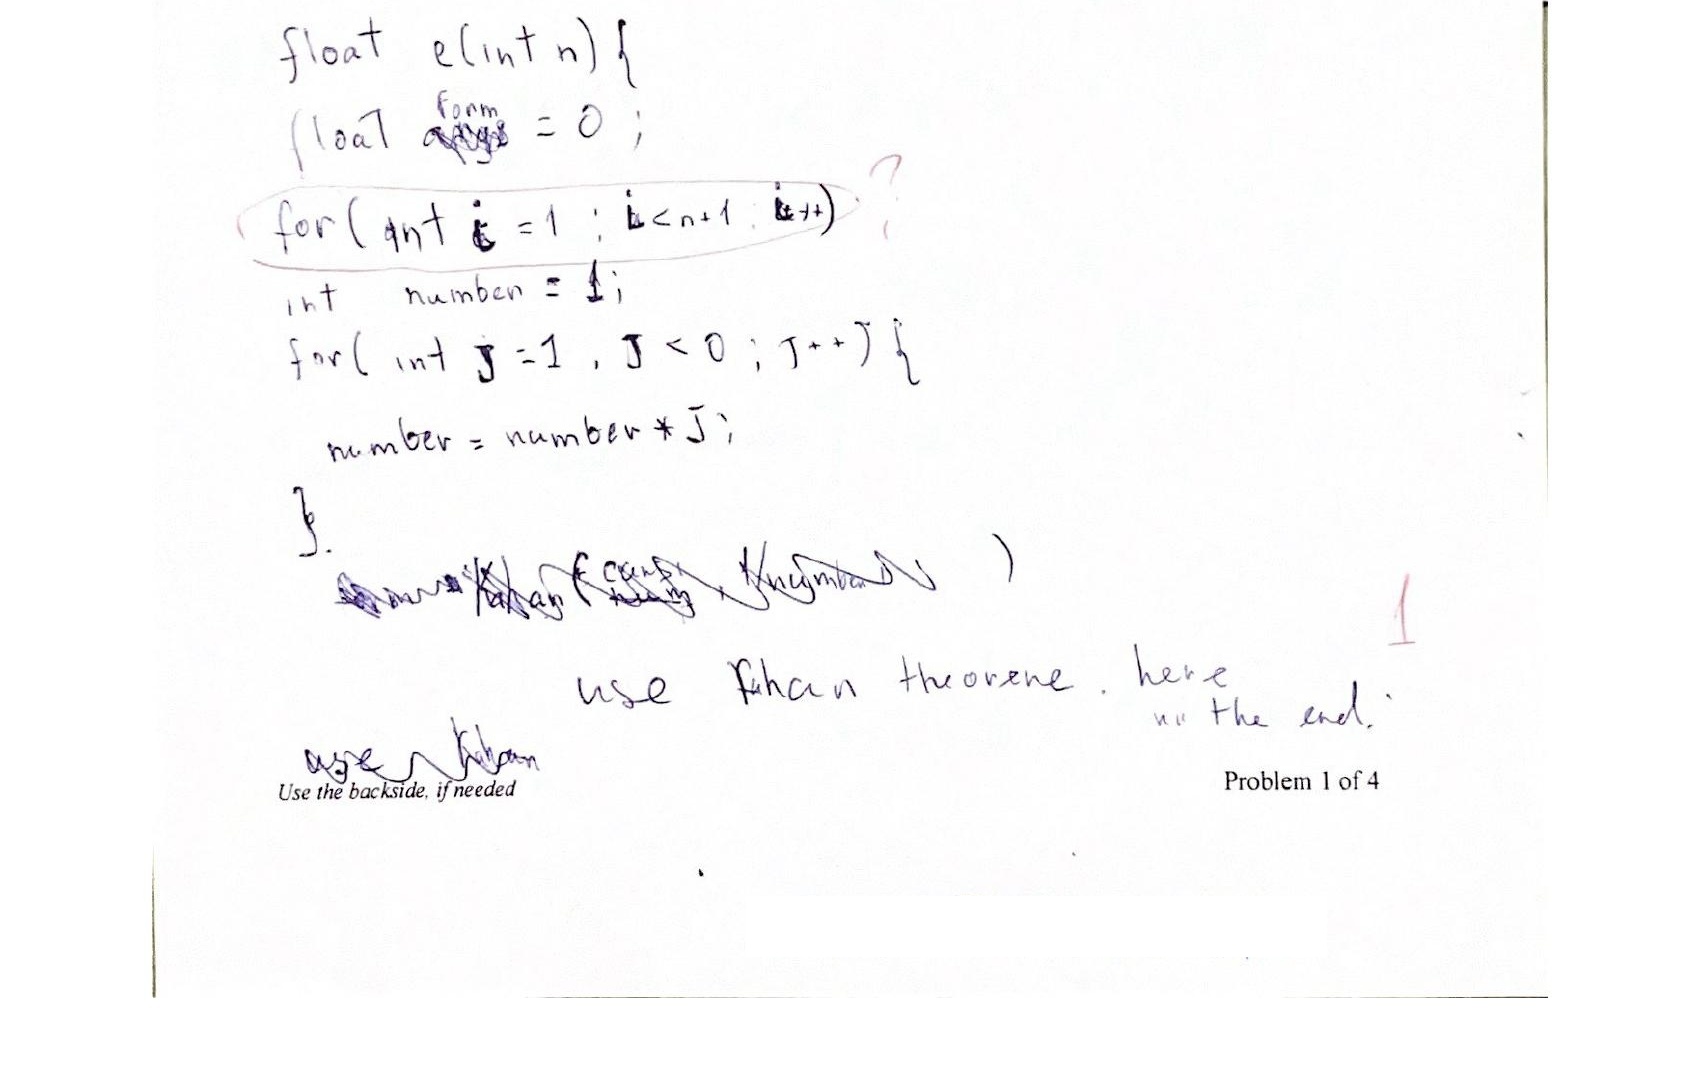 float e(int n) {
float form = 0 ;
for( int i = 1 ; i < n+1 ; i++) ?
int number = 1;
for( int j = 1 , J < 0 ; J++) {
number = number * J;
}.
)
1
use Kahan theoreme . here
the end.
use Kahan
Use the backside, if needed
Problem 1 of 4